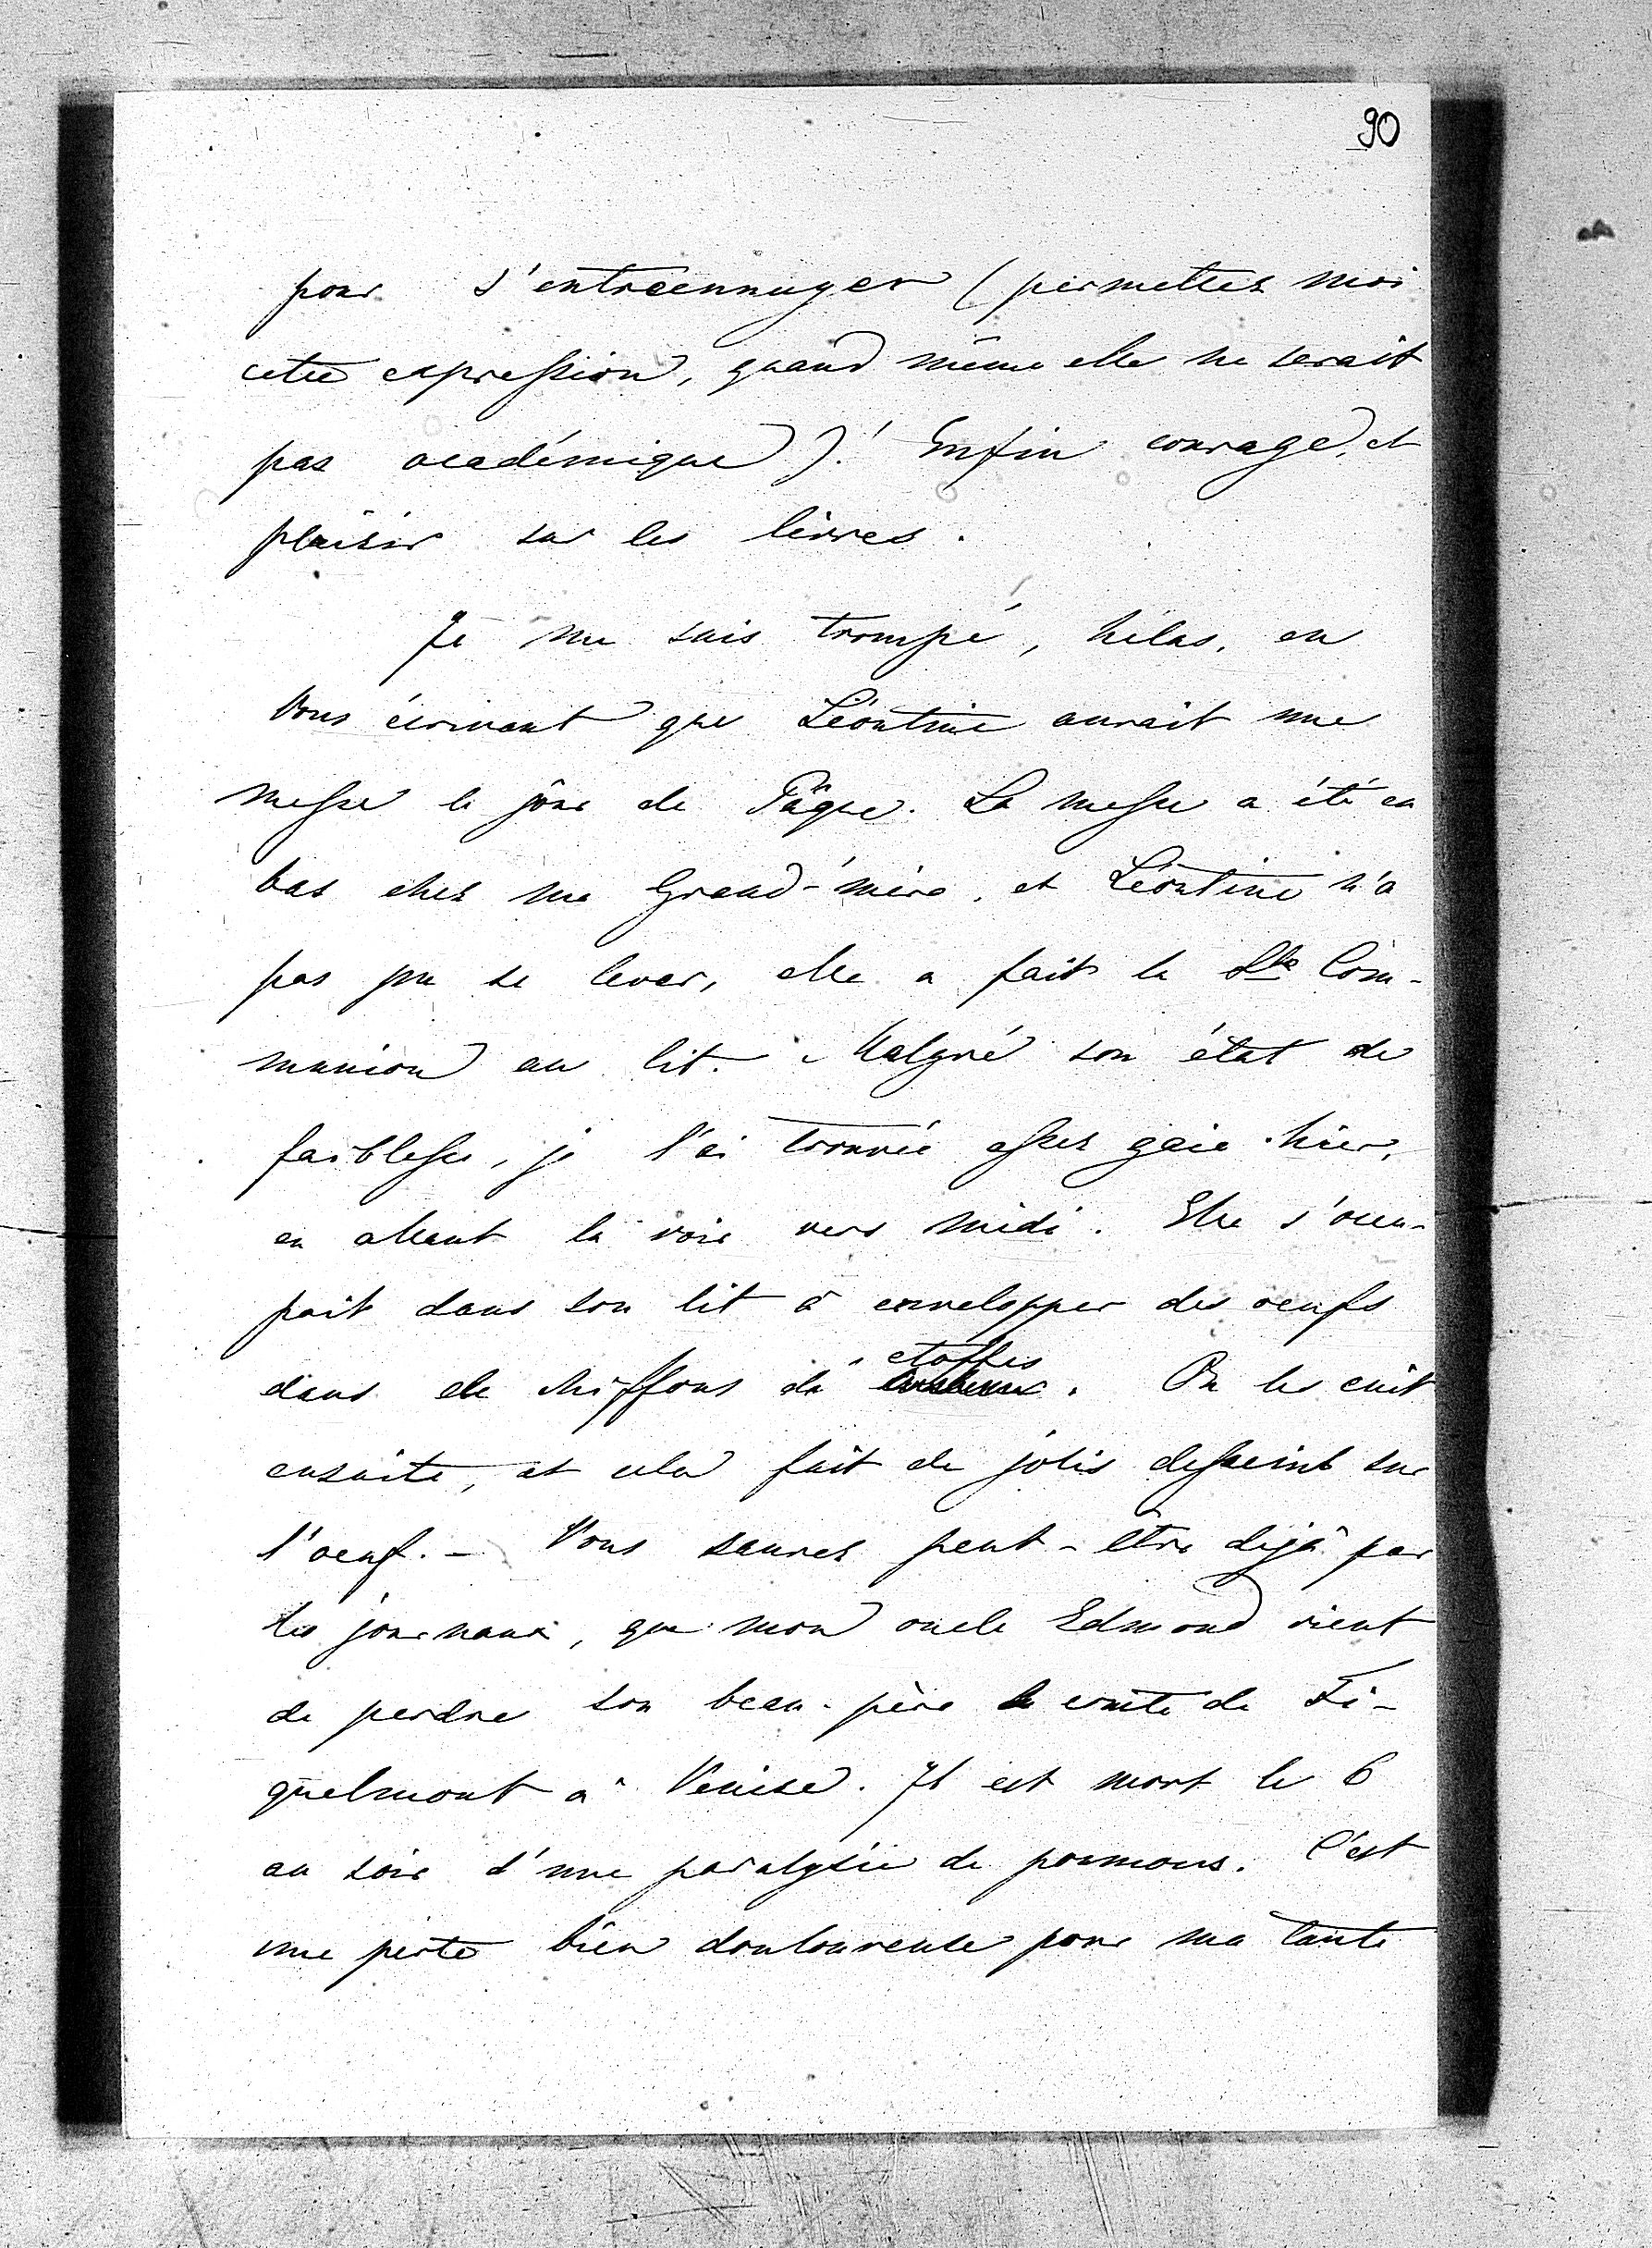 90
pour s'entreennuyer (permettez moi
cette expression, quand même elle ne serait
pas académique)! Enfin courage, et
plaisir sur les lèvres.
Je me suis trompé, hélas, en
Vous écrivant que Léontine aurait une
messe le jour de Pâque. La messe a été en
bas chez ma Grand-mère, et Léontine n'a
pas pu se lever, elle a fait la Ste Com-
munion au lit. Malgré son état de
faiblesse, je l'ai trouvée assez gaie hier,
en allant la voir vers midi. Elle s'occu-
pait dans son lit à envelopper des oeufs
etoffes
dans de chiffons d' . On les cuit
ensuite, et cela fait de jolis desseins sur
l'oeuf. – Vous saurez peut-être déjà par
les journaux, que mon oncle Edmond vient
de perdre son beau-père le comte de Fi-
quelmont à Venise. Il est mort le 6
au soir d'une paralysie de poumons. C'est
une perte bien douloureuse pour ma tante